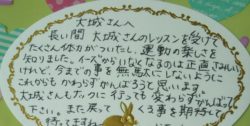 大城さんへ
長い間 大城さんのレッスンを受けて
たくさん体力がついたし、運動の楽しさを
知りました。イーズからいなくなるのは正直さみしい
けれど、今までの事を無駄にしないように
これからもかわらずがんばろうと思います。
大城さんも に行っても変わらずがんばって
下さい。また戻って くる事を期待して
待ってますね